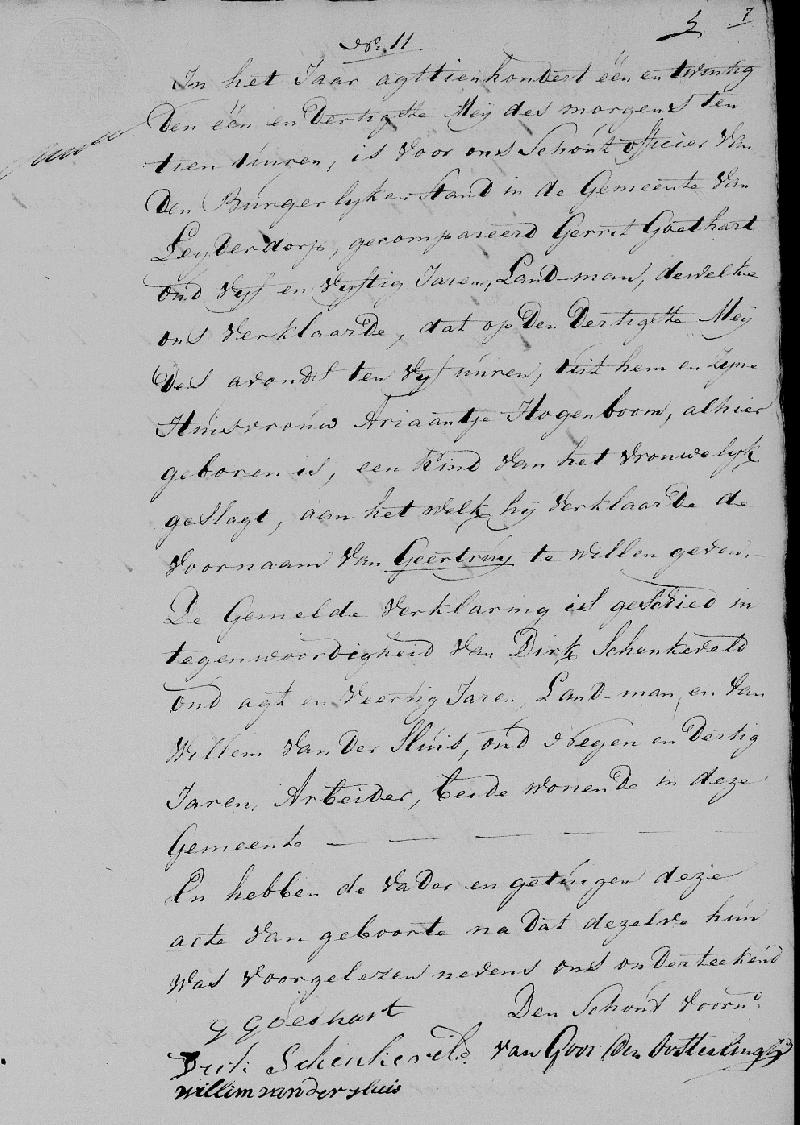 5 7
No. 11
In het Jaar agttienhondert één en twintig
Den één en Dertigste Meij des morgens ten
tien úúren, is voor ons Schoút officier van
Den Búrgerlyken Stand in de Gemeente van
Leyderdorp, gecompareerd Gerrit Goethart
oúd vyf en vyftig Jaren, Land-man, dewelke
ons verklaarde, dat op Den Dertigste Meij
Des avonds ten vyf úúren, úit hem en zyne
Húisvroúw Ariaantje Hogenboom, alhier
geboren is, een kind van het vrouwelyk
geslagt, aan het welk hij verklaarde de
voornaam van Geertruy te willen geven.
De Gemelde verklaring is geschied in
tegenwoordigheid van Dirk Schenkeveld
oúd agt en veertig Jaren, Land-man, en van
Willem van Der Sluis, oúd Negen en Dertig
Jaren, Arbeider, beide wonende in deze
Gemeente — — — — —
En hebben de vader en getúigen deze
acte van geboorte na dat dezelve hún
was voorgelezen nevens ons onderteekend
G Goethart Den Schoút voorn.
Dirk Schenkeveld van Goor Den Oosterlingh
willem van der sluis